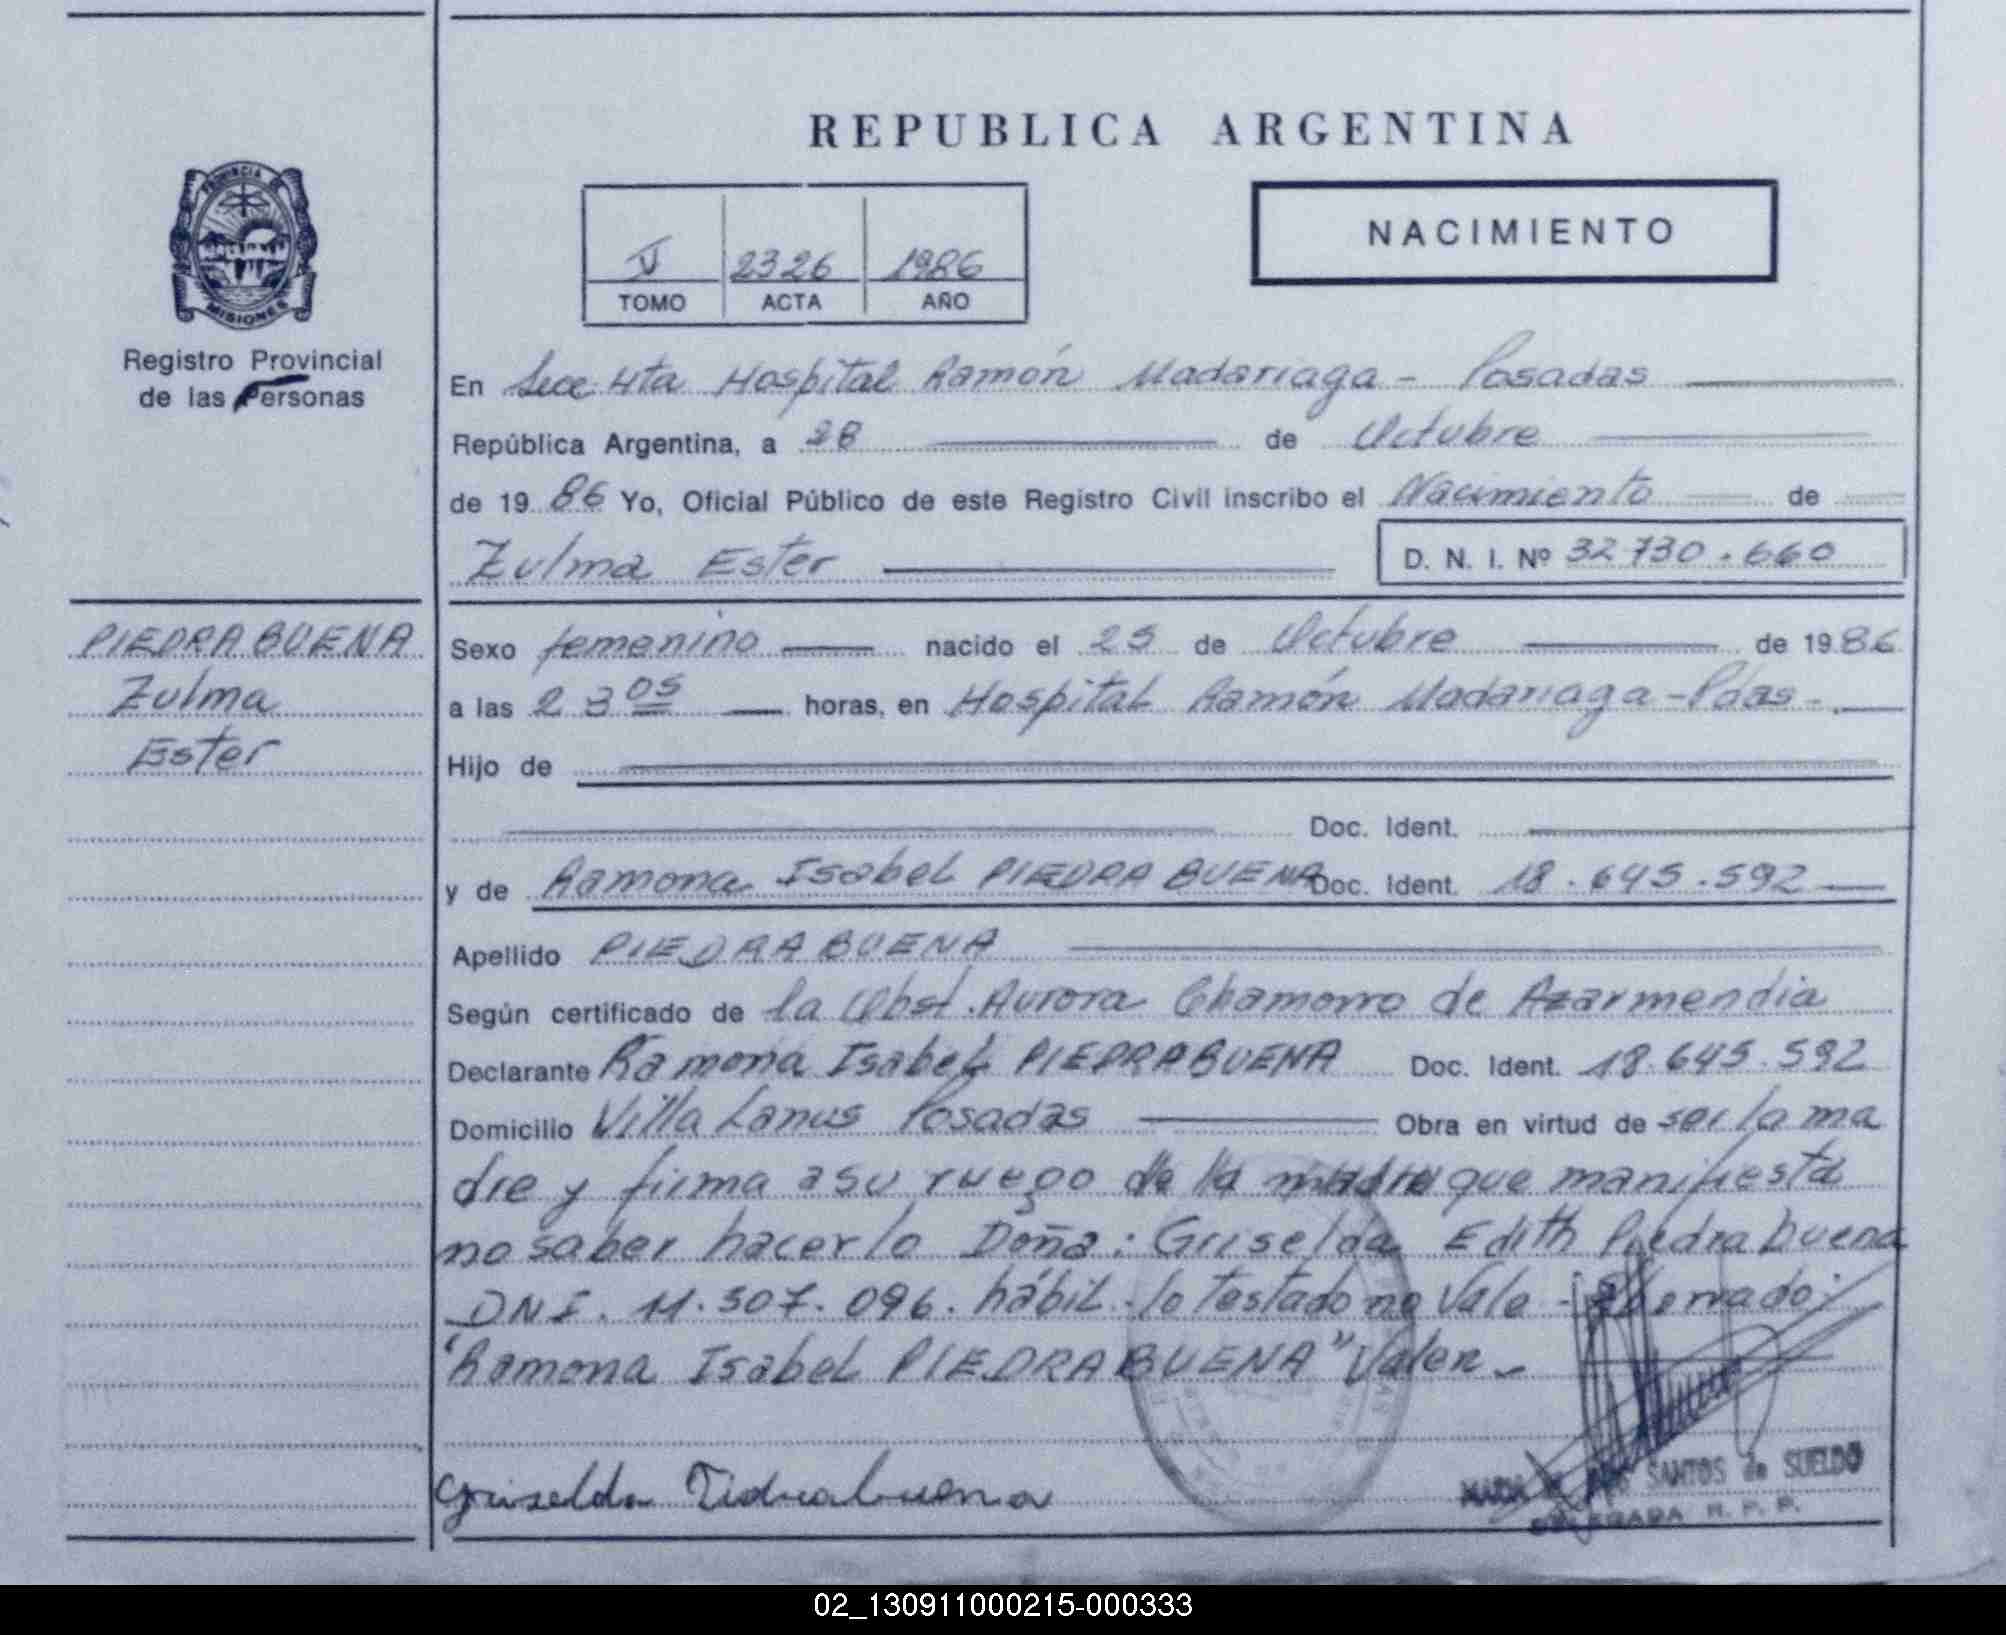 REPUBLICA ARGENTINA
NACIMIENTO
V 2326 1986
TOMO ACTA AÑO
PROVINCIA DE
MISIONES
Registro Provincial
de las Personas
En Secc 4ta Hospital Ramón Madariaga - Posadas
República Argentina, a 28 de Octubre
de 19 86 Yo, Oficial Público de este Registro Civil inscribo el Nacimiento de
Zulma Ester D. N. I. Nº 32 730.660
PIEDRABUENA
Zulma
Ester
Sexo femenino nacido el 25 de Octubre de 1986
a las 23 05 horas, en Hospital Ramón Madariaga - Pdas -
Hijo de
Doc. Ident.
y de Ramona Isabel PIEDRABUENA Doc. Ident. 18.645.592
Apellido PIEDRABUENA
Según certificado de la Obst. Aurora Chamorro de Azarmendia
Declarante Ramona Isabel PIEDRABUENA Doc. Ident. 18.645.592
Domicilio Villa Lanus Posadas Obra en virtud de ser la ma
dre y firma a su ruego de la madre que manifesta
no saber hacerlo Doña: Griselda Edith Piedrabuena
DNI. 11.307.096. hábil. lo testado no Vale -
"Ramona Isabel PIEDRABUENA" Valen -
Griselda Piedrabuena
SANTOS de SUELDO
DELEGADA R. P. P.
02_130911000215-000333